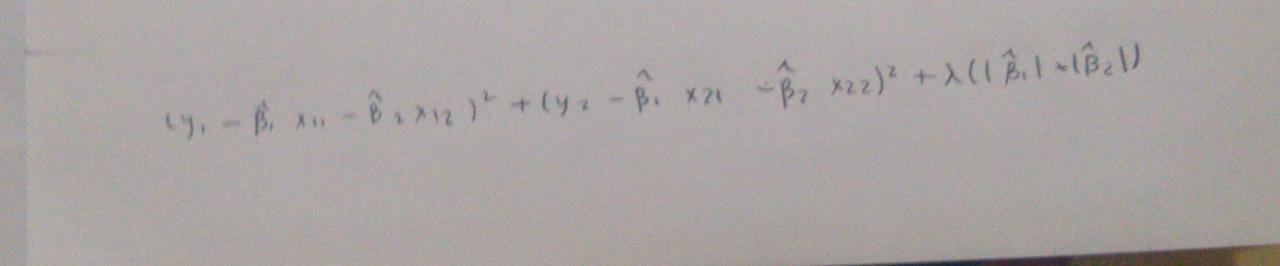 (y₁ - β̂₁ x₁₁ - β̂₂ x₁₂)² + (y₂ - β̂₁ x₂₁ - β̂₂ x₂₂)² + λ(|β̂₁| + |β̂₂|)